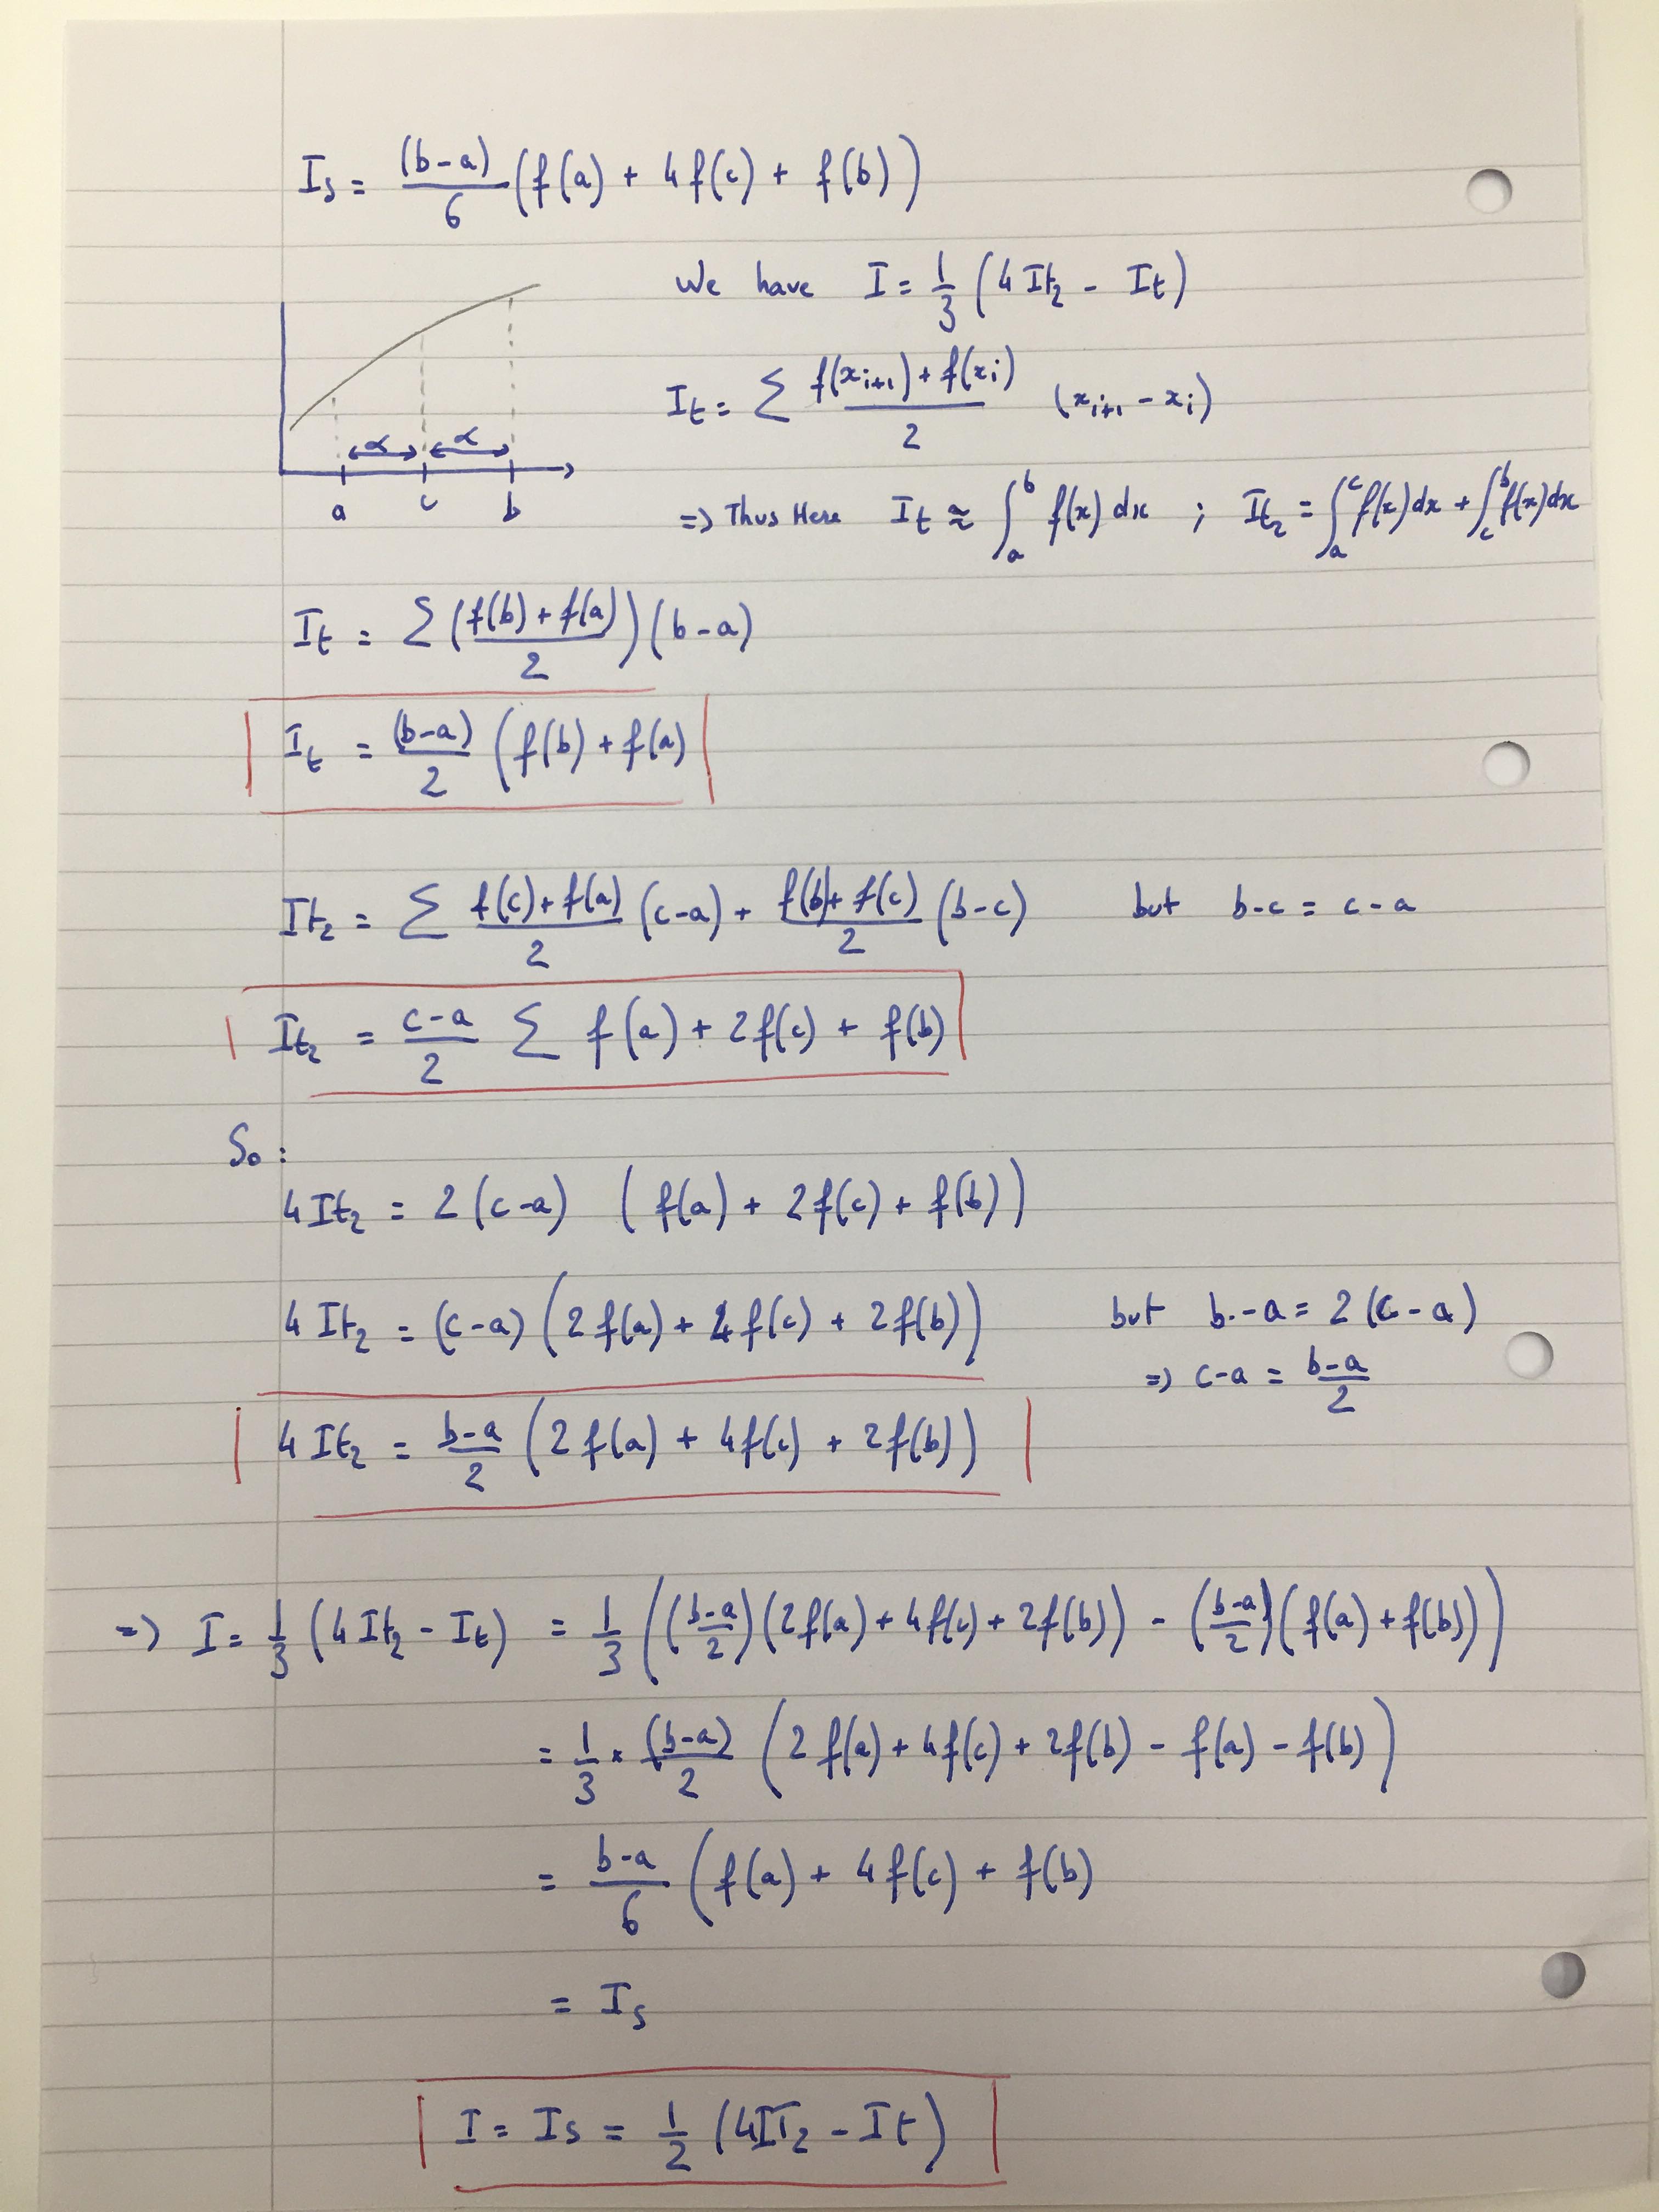 Is = (b-a)/6 (f(a) + 4f(c) + f(b))
We have I = 1/3 (4It₂ - It)
It = Σ f(xᵢ₊₁) + f(xᵢ)/2 (xᵢ₊₁ - xᵢ)
α α
a c b
=> Thus Here It ≈ ∫ₐᵇ f(x) dx ; It₂ = ∫ₐᶜ f(x) dx + ∫cᵇ f(x) dx
It = Σ (f(b) + f(a)/2) (b-a)
It = (b-a)/2 (f(b) + f(a)
It₂ = Σ f(c) + f(a)/2 (c-a) + f(b) + f(c)/2 (b-c) but b-c = c-a
It₂ = c-a/2 Σ f(a) + 2f(c) + f(b)
So :
4It₂ = 2(c-a) (f(a) + 2f(c) + f(b))
4It₂ = (c-a) (2f(a) + 4f(c) + 2f(b)) but b-a = 2(c-a)
=> c-a = b-a/2
4It₂ = b-a/2 (2f(a) + 4f(c) + 2f(b))
=> I = 1/3 (4It₂ - It) = 1/3 ((b-a/2)(2f(a) + 4f(c) + 2f(b)) - (b-a/2)(f(a) + f(b)))
= 1/3 × (b-a)/2 (2f(a) + 4f(c) + 2f(b) - f(a) - f(b))
= b-a/6 (f(a) + 4f(c) + f(b)
= Is
I = Is = 1/2 (4IT₂ - It)